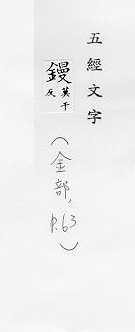 五經文字
鏝莫干反
(金部,
P.63)